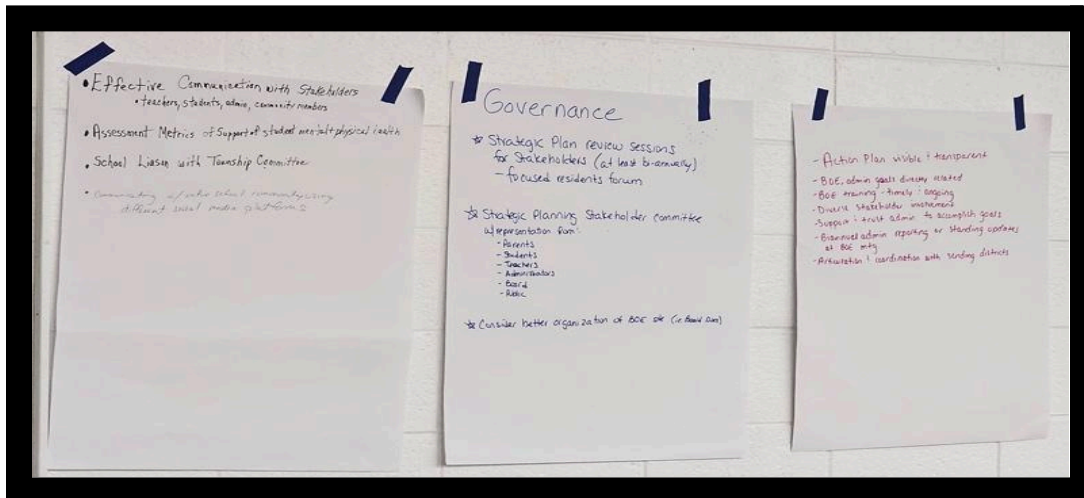 • Effective Communication with Stakeholders
• teachers, students, admin, community members
• Assessment Metrics of Support of student mental + physical health
• School Liason with Township Committee
• Communicating w/ entire school community using
different social media platforms
Governance
☆ Strategic Plan review sessions
for Stakeholders (at least bi-annually)
- focused residents forum
☆ Strategic Planning Stakeholder committee
w/ representation from:
- Parents
- Students
- Teachers
- Administrators
- Board
- Public
☆ Consider better organization of BOE site (ie Board Docs)
- Action Plan visible & transparent
- BOE, admin goals directly related
- BOE training - timely & ongoing
- Diverse Stakeholder involvement
- Support & trust admin to accomplish goals
- Biannual admin reporting or standing updates
at BOE mtg
- Articulation & coordination with sending districts